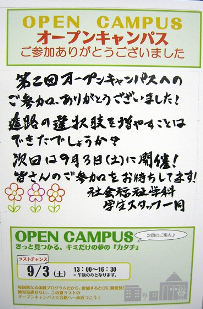 OPEN CAMPUS
オープンキャンパス
ご参加ありがとうございました
第2回オープンキャンパスへの
ご参加、ありがとうございました!
進路の選択肢を増やすことは
できたでしょうか?
次回は9月3日(土)に開催!
皆さんのご参加をお待ちしてます!
社会福祉学科
学生スタッフ一同
OPEN CAMPUS
きっと見つかる。キミだけの夢の「カタチ」
ラストチャンス
9/3(土)
13:00~16:30